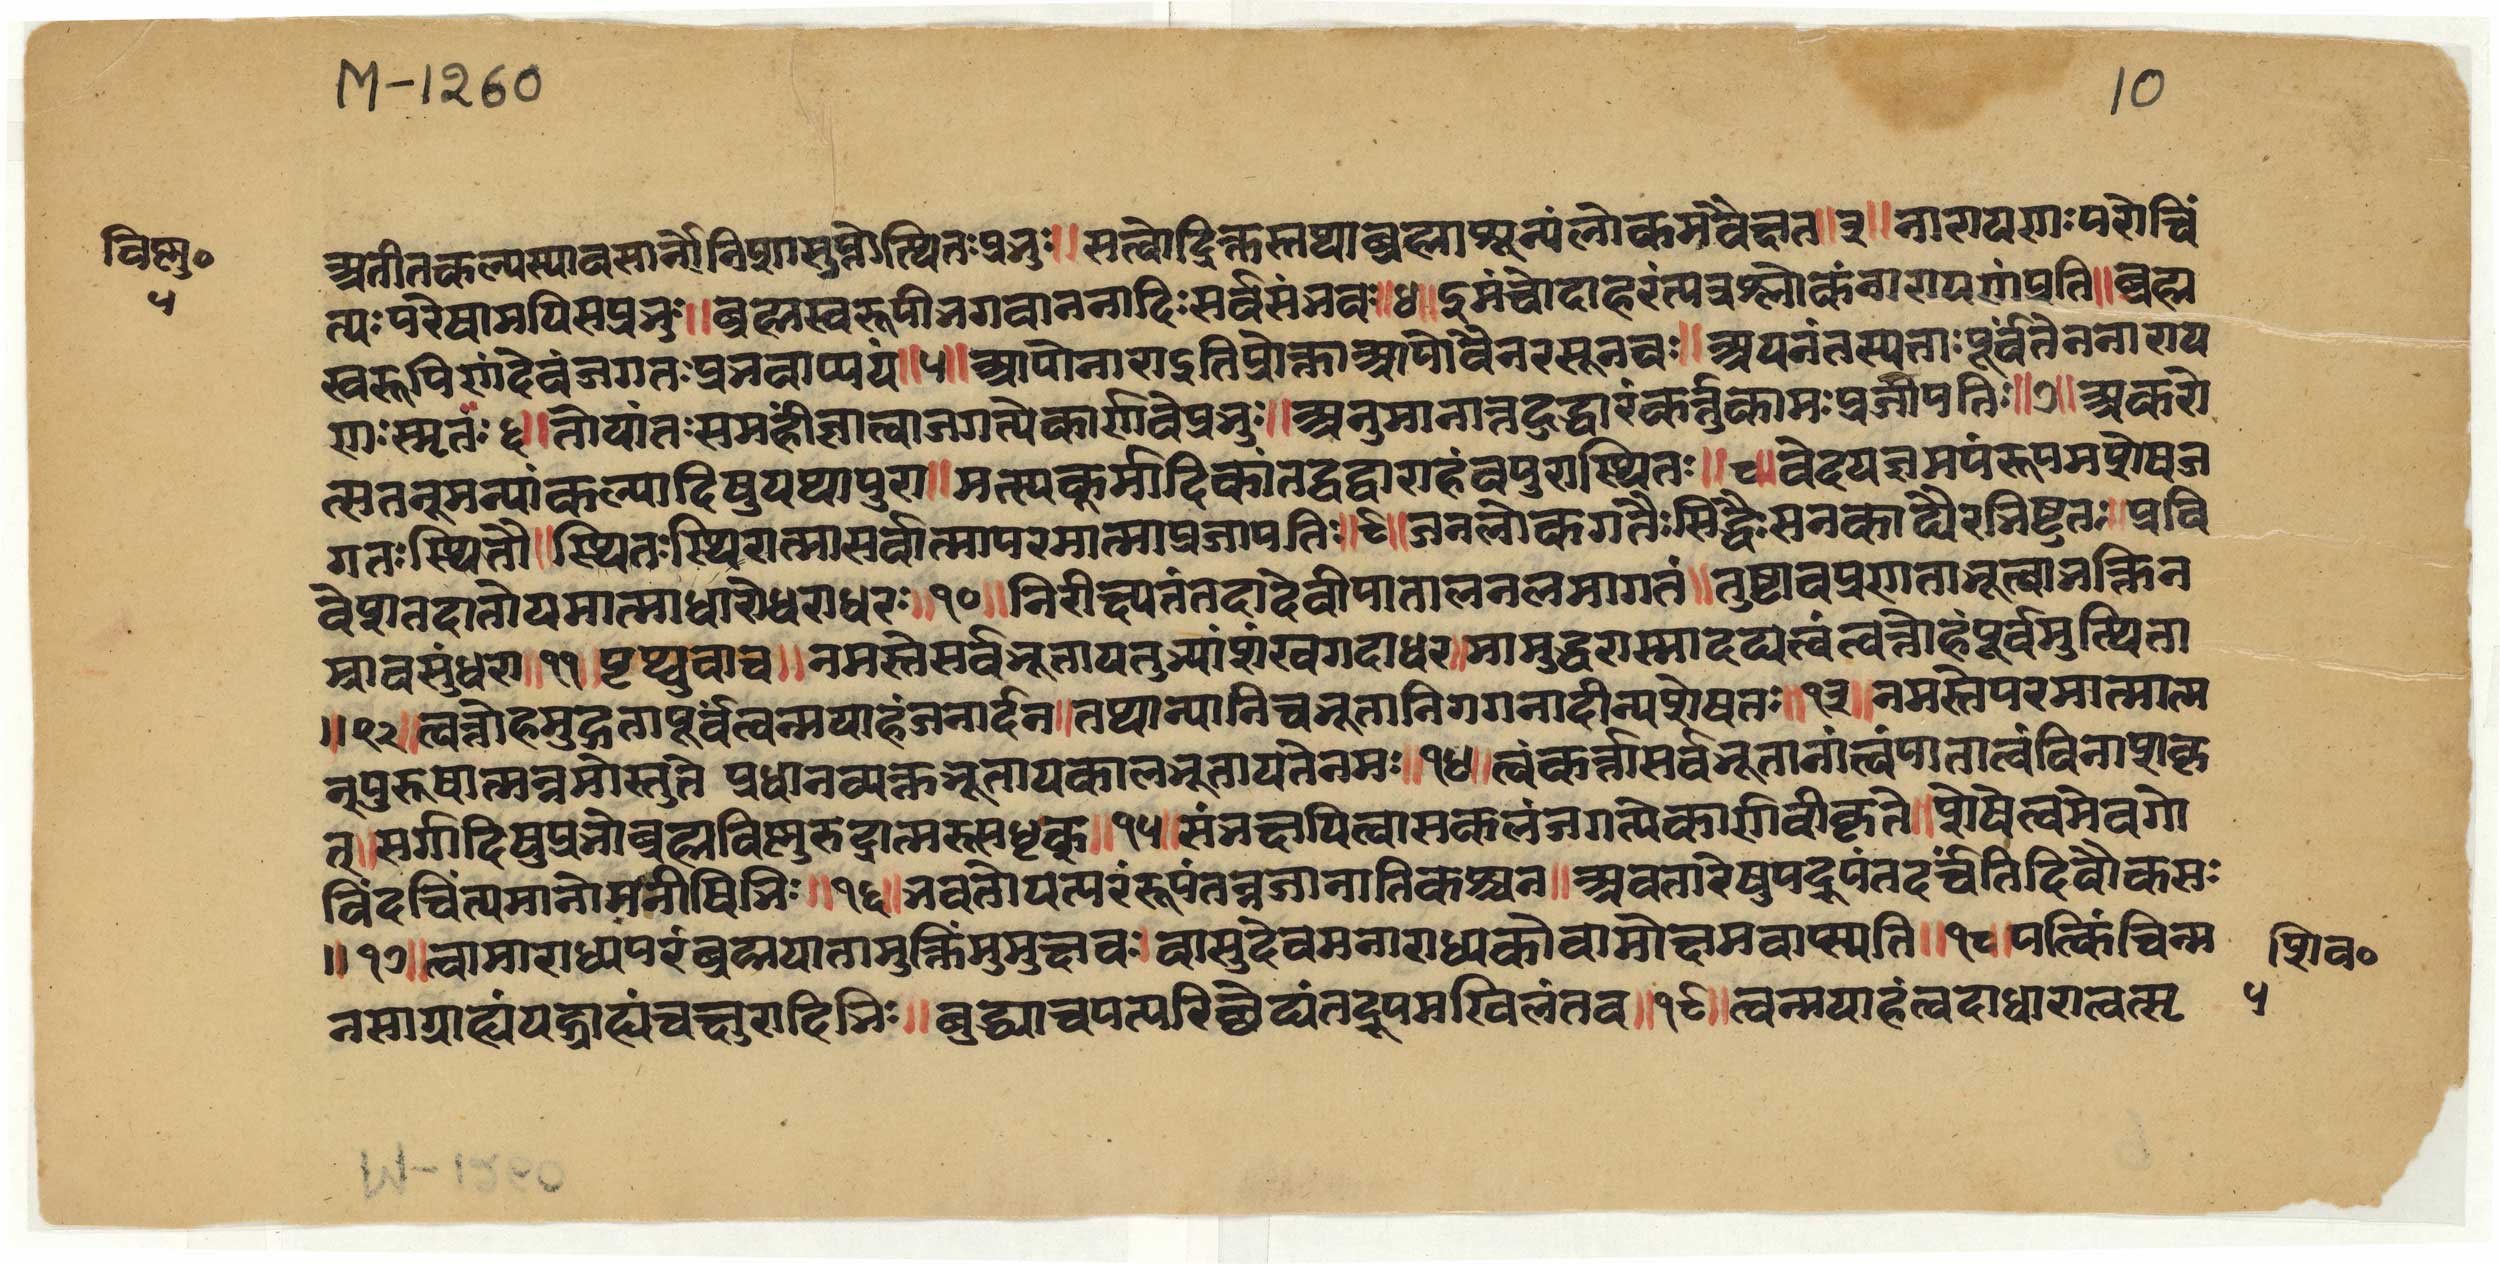 M-1260
10
विष्णु०
५
अतीतकल्पस्यावसाने निशासुप्तोत्थितः प्रभुः ॥ सत्वोद्रिक्तस्तथा ब्रह्मा शून्यं लोकमवैक्षत ॥ ३ ॥ नारायणः परो चिं
त्यः परेषामपि स प्रभुः ॥ ब्रह्मस्वरूपी भगवाननादिः सर्वसंभवः ॥ ४ ॥ इमं चोदाहरंत्यत्र श्लोकं नारायणं प्रति ॥ ब्रह्म
स्वरूपिणं देवं जगतः प्रभवाप्ययं ॥ ५ ॥ आपो नारा इति प्रोक्ता आपो वै नरसूनवः ॥ अयनं तस्य ताः पूर्वं तेन नाराय
णः स्मृतः ६ ॥ तोयांतः स महीं ज्ञात्वा जगत्येकार्णवे प्रभुः ॥ अनुमानात्तदुद्धारं कर्त्तुकामः प्रजापतिः ॥ ७ ॥ अकरो
त्स तनूमन्यां कल्पादिषु यथा पुरा ॥ मत्स्यकूर्मादिकां तद्वद्वाराहं वपुरास्थितः ॥ ८ ॥ वेदयज्ञमयं रूपमशेषज
गतः स्थितौ ॥ स्थितः स्थिरात्मा सर्वात्मा परमात्मा प्रजापतिः ॥ ९ ॥ जनलोकगतैः सिद्धैः सनकाद्यैरभिष्टुतः ॥ प्रवि
वेश तदा तोयमात्माधारो धराधरः ॥ १० ॥ निरीक्ष्य तं तदा देवी पातालतलमागतं ॥ तुष्टाव प्रणता भूत्वा भक्तिन
म्रा वसुंधरा ॥ ११ ॥ पृथ्व्युवाच ॥ नमस्ते सर्वभूताय तुभ्यं शंखगदाधर ॥ मामुद्धरास्मादद्य त्वं त्वत्तोहं पूर्वमुत्थिता
॥ १२ ॥ त्वत्तोहमुद्धृता पूर्वं त्वन्मयाहं जनार्दन ॥ तथान्यानि च भूतानि गगनादीन्यशेषतः ॥ १३ ॥ नमस्ते परमात्मात्म
न्पुरुषात्मन्नमोस्तु ते प्रधानव्यक्तभूताय कालभूताय ते नमः ॥ १४ ॥ त्वं कर्त्ता सर्वभूतानां त्वं पाता त्वं विनाशकृ
त् ॥ सर्गादिषु प्रभो ब्रह्मविष्णुरुद्रात्मरूपधृक् ॥ १५ ॥ संभक्षयित्वा सकलं जगत्येकार्णवीकृते ॥ शेषे त्वमेव गो
विंद चिंत्यमानो मनीषिभिः ॥ १६ ॥ भवतो यत्परं रूपं तन्न जानाति कश्चन ॥ अवतारेषु यद्रूपं तदर्चंति दिवौकसः
॥ १७ ॥ त्वामाराध्य परं ब्रह्म याता मुक्तिं मुमुक्षवः । वासुदेवमनाराध्य को वा मोक्षमवाप्स्यति ॥ १८ ॥ यत्किंचिन्म
नसा ग्राह्यं यद्ग्राह्यं चक्षुरादिभिः ॥ बुद्ध्या च यत्परिच्छेद्यं तद्रूपमखिलं तव ॥ १९ ॥ त्वन्मयाहं त्वदाधारा त्वत्सृ
शिव०
५